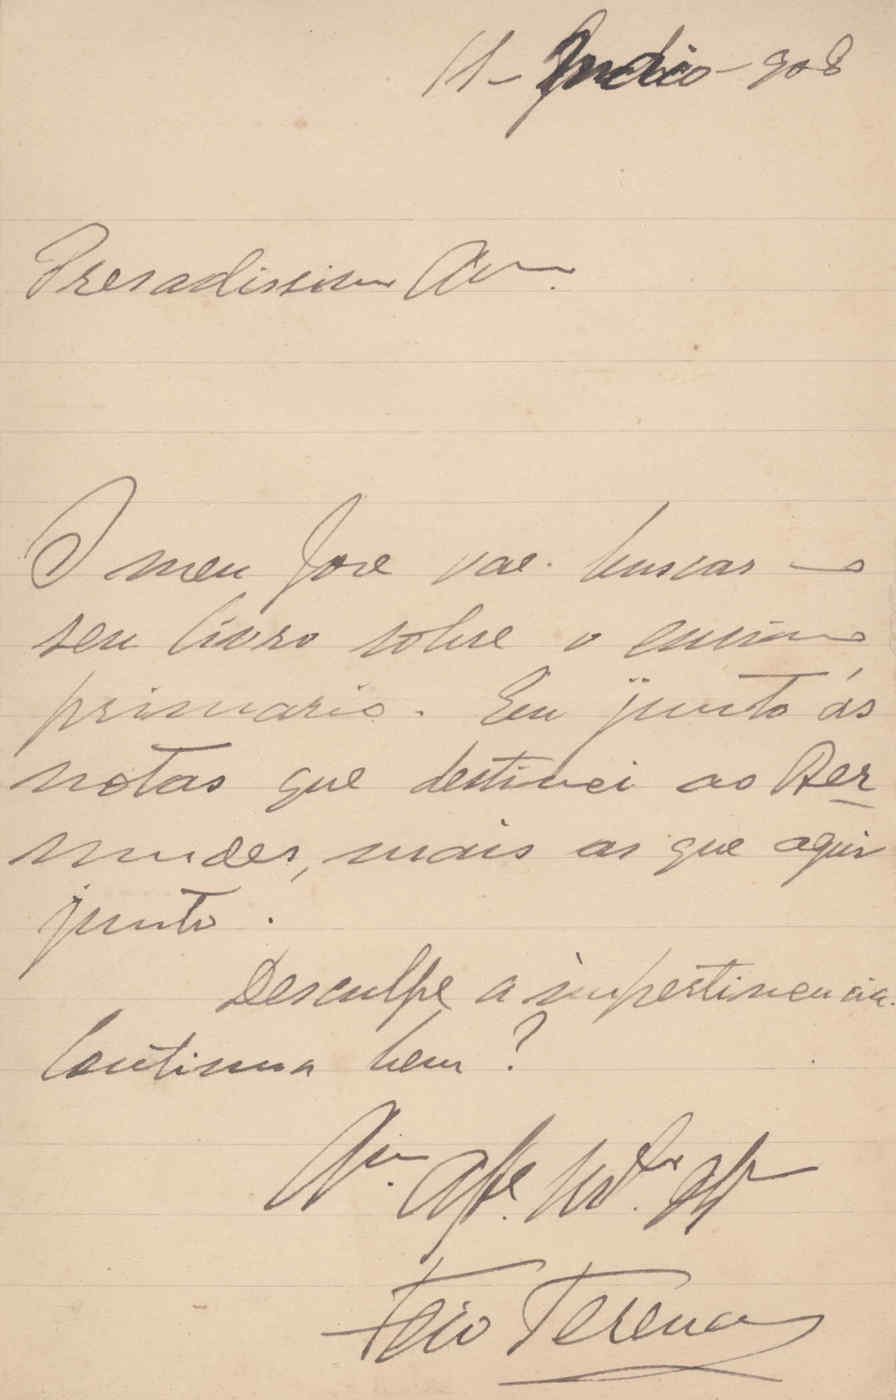 11 - Junho - 908
Presadissimo Am.
O meu José vae buscar o
seu livro sobre o ensino
primario. Eu junto ás
notas que destinei ao Ber
nudes, mais as que aqui
junto.
Desculpe a impertinencia.
Continua bem?
Am. Affe.
Feio Terenas